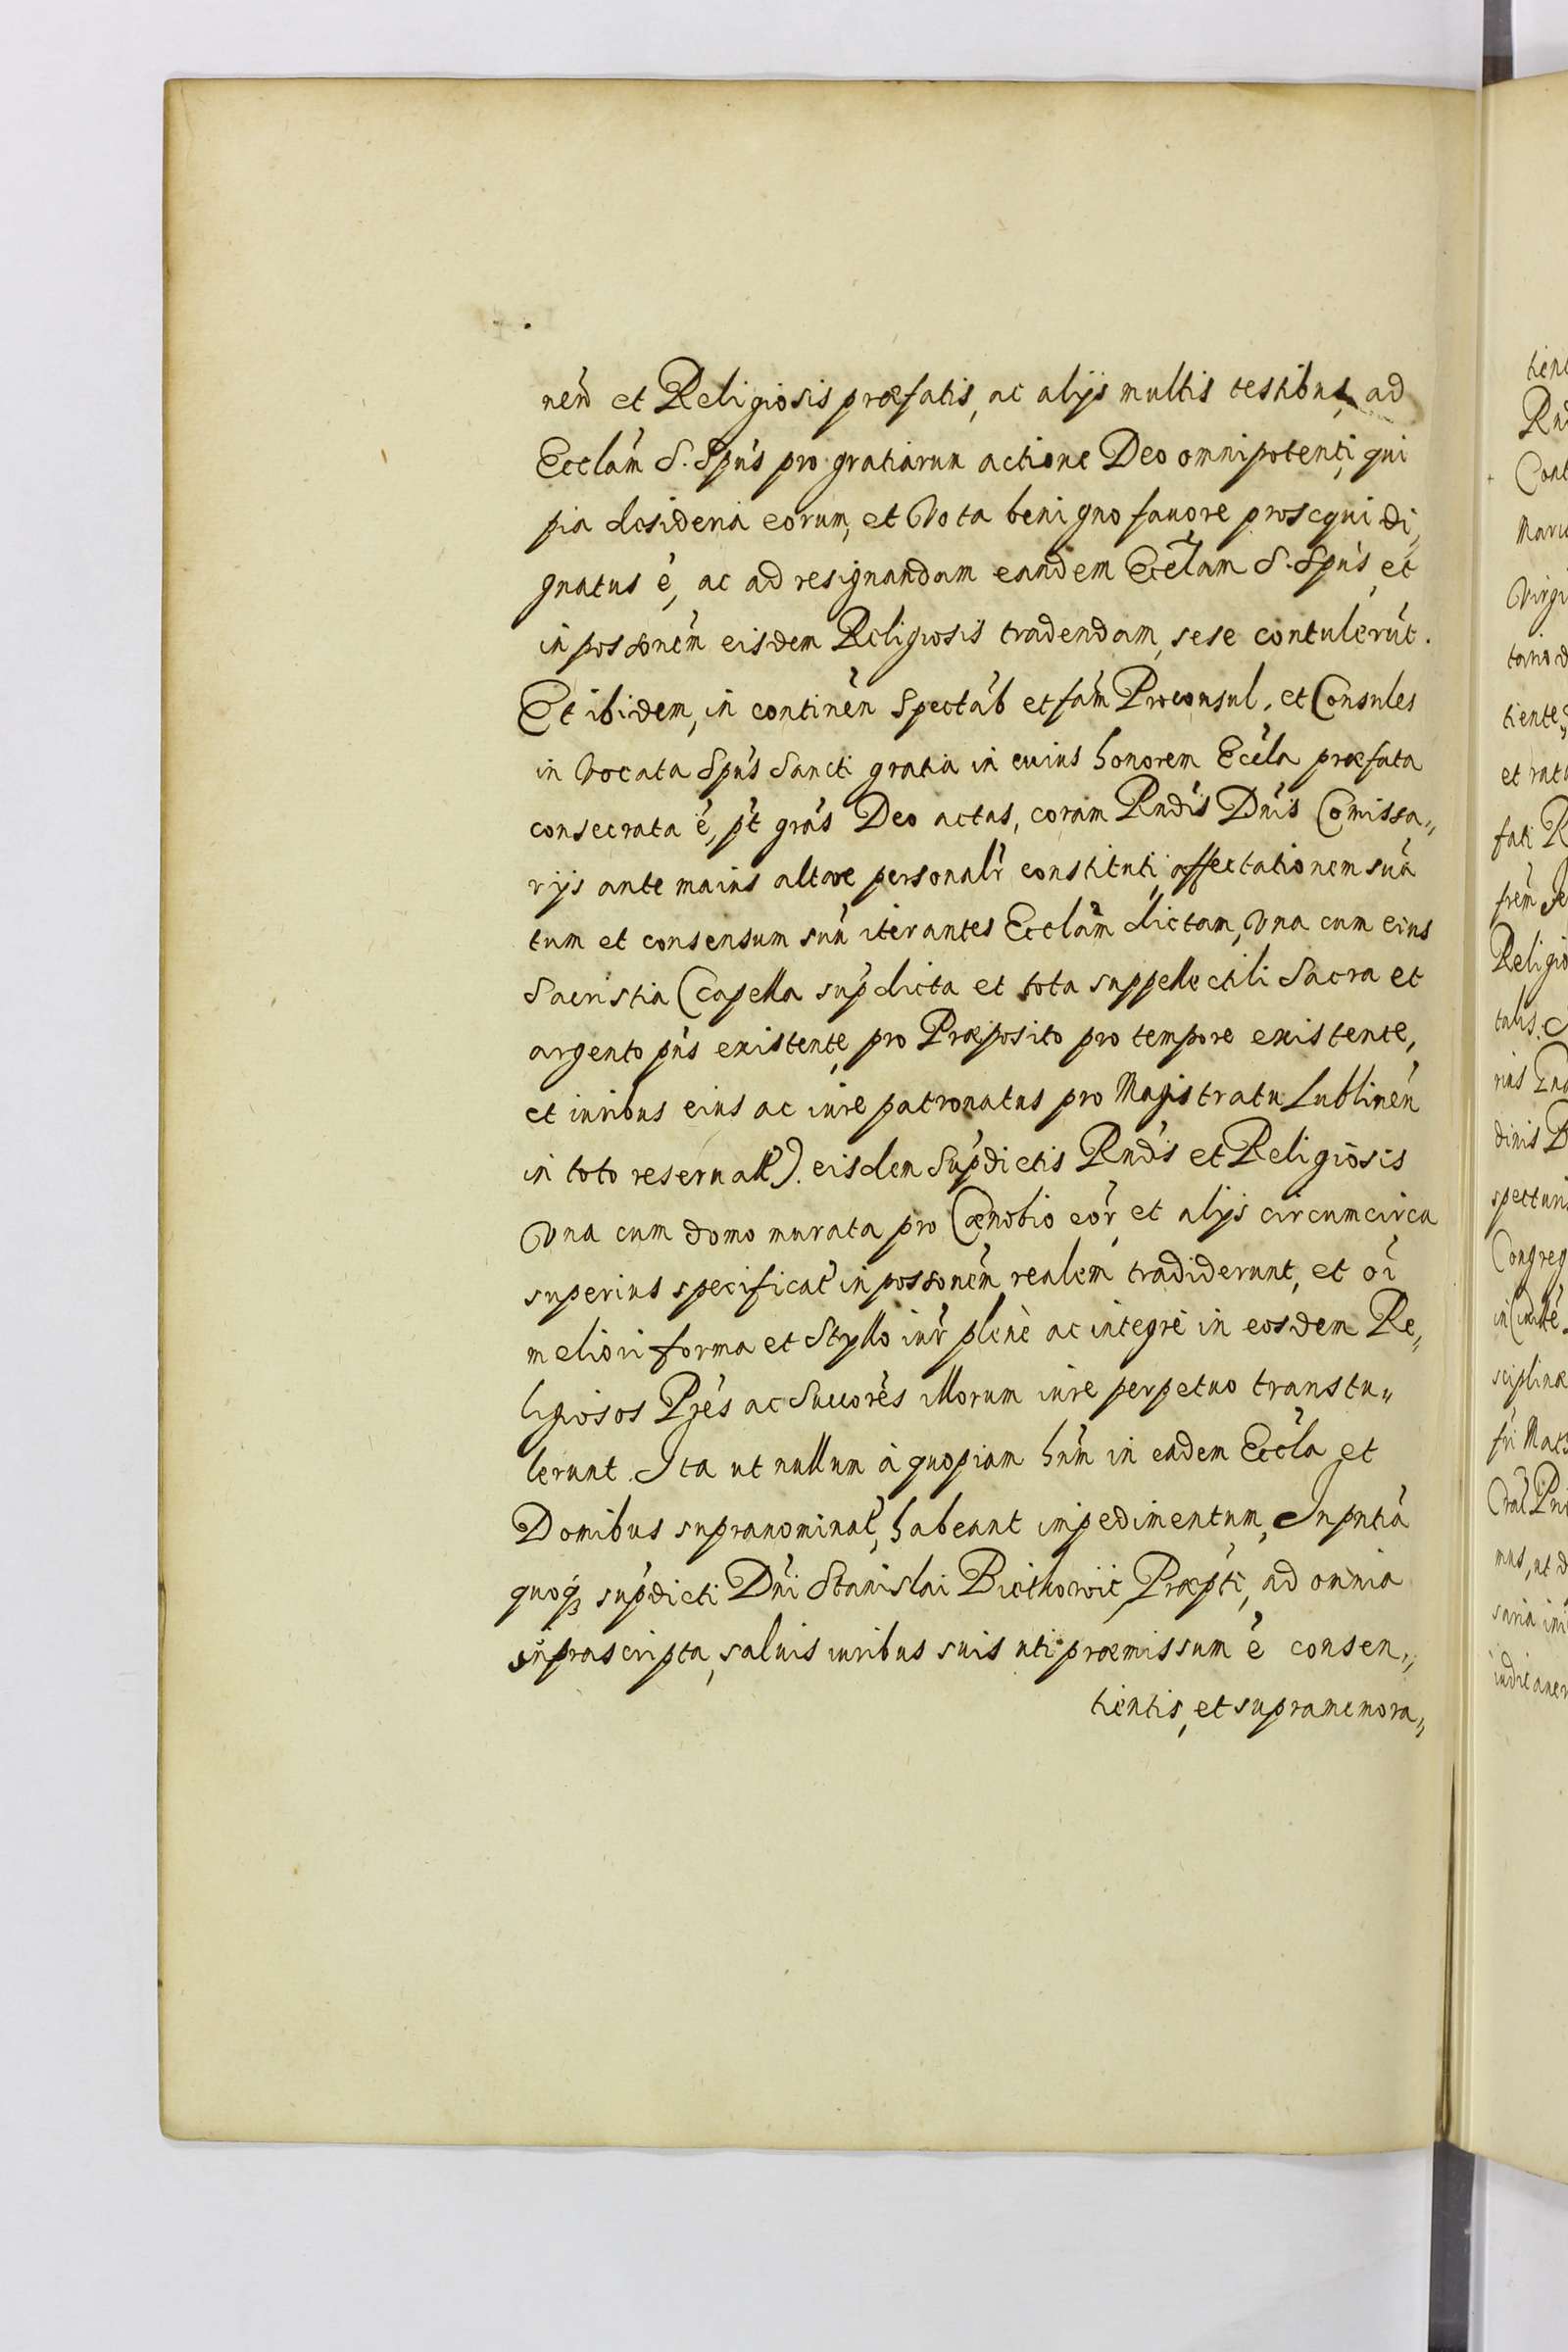 nẽn et Religiosis præfatis, ac alijs multis testibus, ad
Ecclãm S. Spũs pro gratiarum actione Deo omnipotenti, qui
pia desideria eorum, et Vota benigno fauore prosequi di,,
gnatus ẽ, ac ad resignandam eandem Ecclãm S. Spũs, et
in possonẽm eisdem Religiosis tradendam, sese contulerũt.
Et ibidem, in continẽn Spectab̃ et fam̃ Proconsul, et Consules
in Vocata Spũs Sancti gratia in cuius honorem Ecc̃la præfata
consecrata ẽ, p̃t grãs Deo actas, coram Rndĩs Dnĩs Comissa,,
rijs ante maius altare personalr̃ constituti, affectationem suã
tum et consensum suũ iterantes Ecclãm dictam, Vna cum eius
Sacristia (Capella sup̃dicta et tota suppellectili Sacra et
argento pñs existente, pro Præposito pro tempore existente,
et iuribus eius ac iure patronatus pro Magistratu Lublinẽn
in toto reseruatt̃). eisdem Sup̃dictis Rndĩs et Religiosis
Vna cum domo murata pro Cænobio eor̃, et alijs circumcirca
superius specificat̃ in possonẽm realem tradiderunt, et oĩ
meliori forma et Styllo iur̃ plenè ac integrè in eosdem Re,,
ligiosos Prẽs ac Succorẽs illorum iure perpetuo transtu,,
lerunt. Ita ut nullum à quopiam hũm in eadem Eccl̃a et
Domibus supranominat̃, habeant impedimentum, In pntiã
quoq3 sup̃dicti Dnĩ Stanislai Biethowic Præpti, ad omnia
supra scripta, saluis iuribus suis uti præmissum ẽ consen,,
tientis, et supramemora,,
tient
Rnd
Cont
Maria
Virgi
tano d
tiente,,
et rata
fati R
frẽm Je
Religio
talis. S
dinis D
specturi
Congreg
sciplinæ
mus, ut d